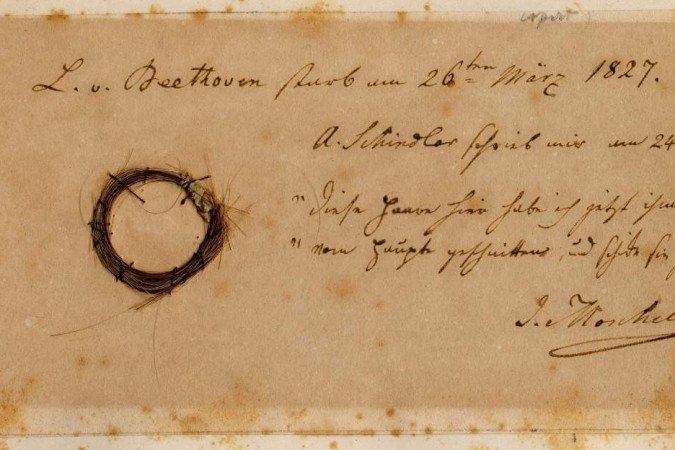 L. v. Beethoven starb am 26ten März 1827.
A. Schindler schrieb mir am 24
" Diese Haare hier habe ich jetzt ihm
" vom Haupte geschnitten, und schicke sie
I. Moschel